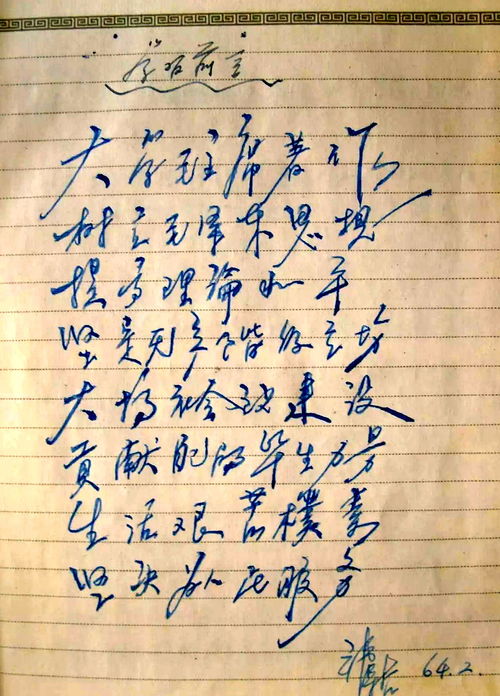 学习前言
大学毛主席著作
树立毛泽东思想
提高理论水平
坚定无产阶级立场
大搞社会主义建设
贡献我的毕生力量
生活艰苦朴素
坚决为人民服务
64.2.